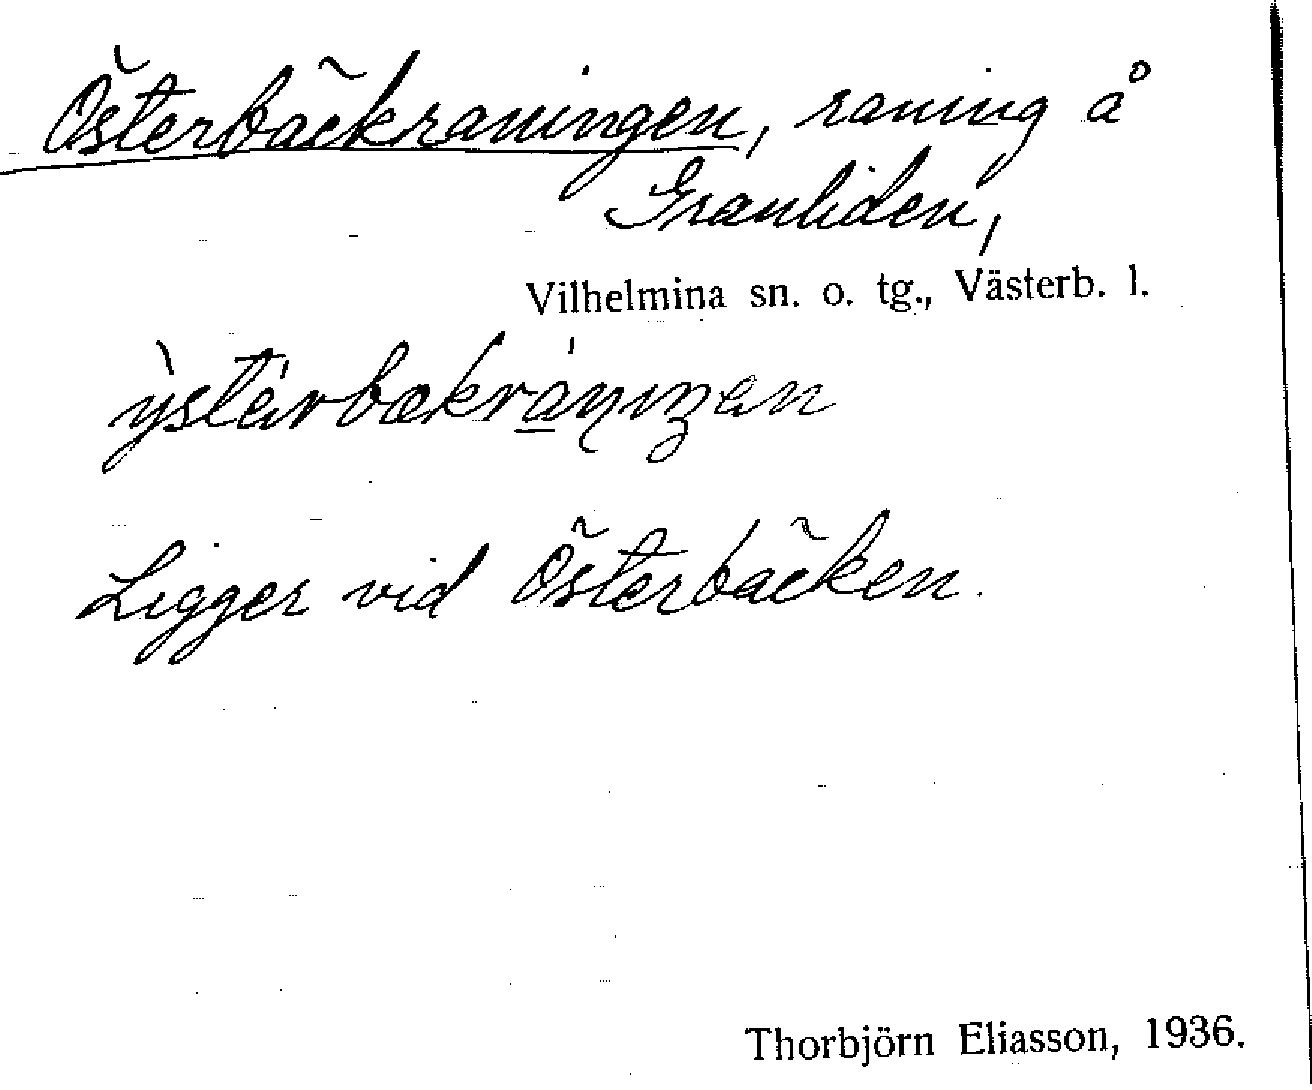 Österbäckraningen, raning å
Granliden,
Vilhelmina sn. o. tg., Västerb. l.
Ligger vid Österbäcken.
Thorbjörn Eliasson, 1936.